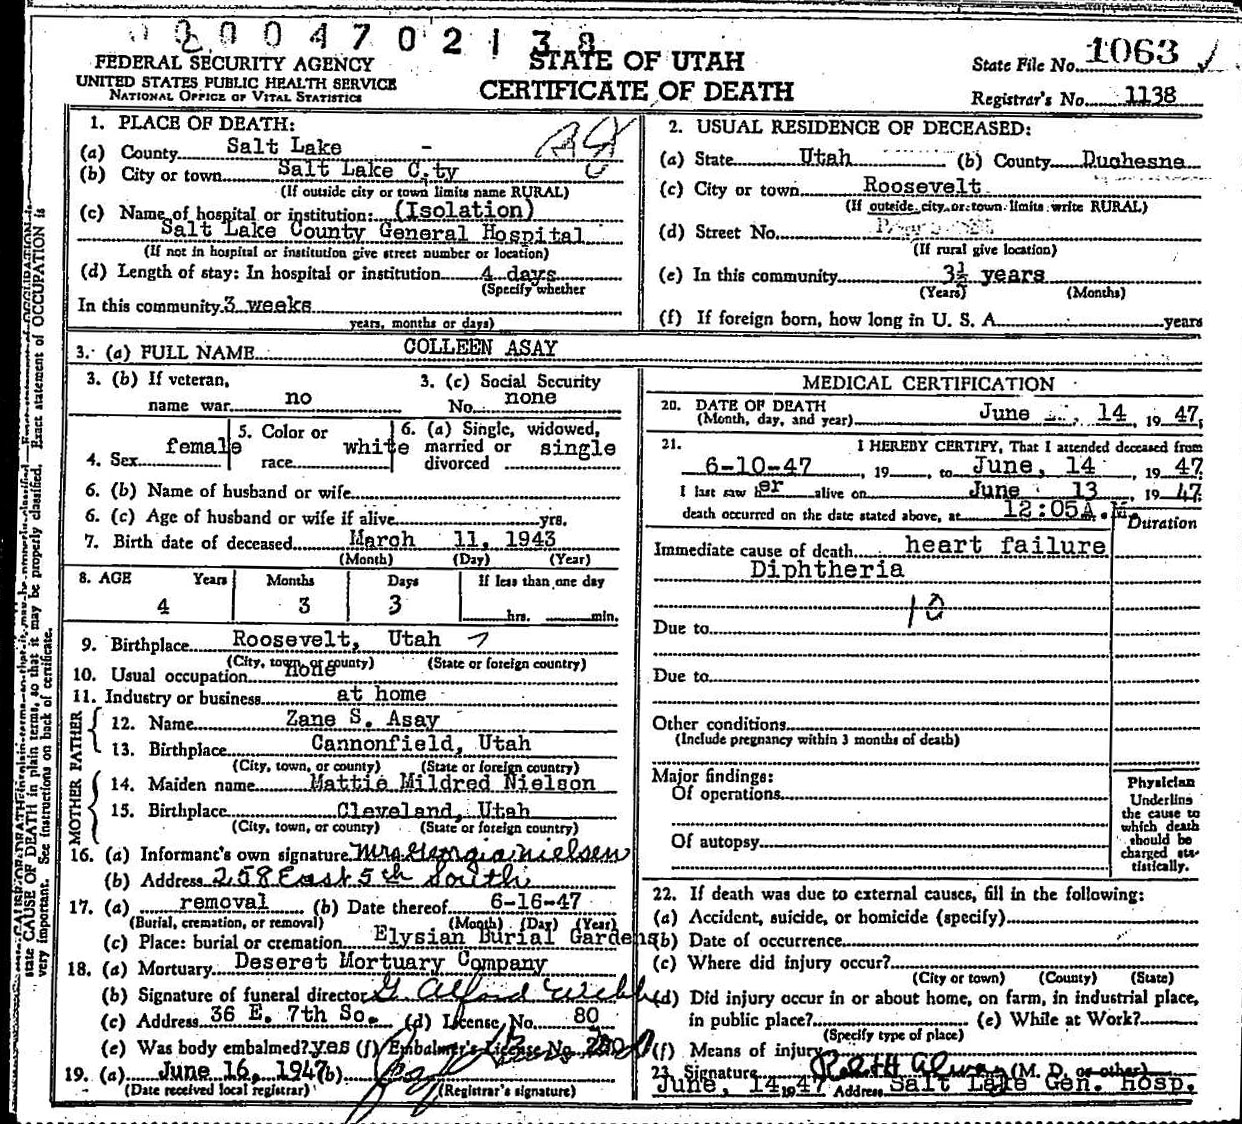 0 0 4 7 0 2 1 3 8
FEDERAL SECURITY AGENCY
UNITED STATES PUBLIC HEALTH SERVICE
NATIONAL OFFICE OF VITAL STATISTICS
STATE OF UTAH
CERTIFICATE OF DEATH
State File No. 1063
Registrar's No. 1138
1. PLACE OF DEATH:
(a) County Salt Lake -
(b) City or town Salt Lake C.ty
(If outside city or town limits name RURAL)
(c) Name of hospital or institution: (Isolation)
Salt Lake County General Hospital
(If not in hospital or institution give street number or location)
(d) Length of stay: In hospital or institution 4 days
(Specify whether
In this community 3 weeks
years, months or days)
2. USUAL RESIDENCE OF DECEASED:
(a) State Utah (b) County Duchesne
(c) City or town Roosevelt
(If outside city or town limits write RURAL)
(d) Street No.
(If rural give location)
(e) In this community 3½ years
(Years) (Months)
(f) If foreign born, how long in U. S. A. years
3. (a) FULL NAME COLLEEN ASAY
3. (b) If veteran, name war no
3. (c) Social Security No. none
4. Sex female
5. Color or race white
6. (a) Single, widowed, married or divorced single
6. (b) Name of husband or wife
6. (c) Age of husband or wife if alive yrs.
7. Birth date of deceased March 11, 1943
(Month) (Day) (Year)
8. AGE Years Months Days If less than one day
4 3 3 hrs. min.
9. Birthplace Roosevelt, Utah
(City, town, or county) (State or foreign country)
10. Usual occupation none
11. Industry or business at home
FATHER
12. Name Zane S. Asay
13. Birthplace Cannonfield, Utah
(City, town, or county) (State or foreign country)
MOTHER
14. Maiden name Mattie Mildred Nielson
15. Birthplace Cleveland, Utah
(City, town, or county) (State or foreign country)
16. (a) Informant's own signature Mrs Georgia Nielsen
(b) Address 258 East 5th South
17. (a) removal (b) Date thereof 6-16-47
(Burial, cremation, or removal) (Month) (Day) (Year)
(c) Place: burial or cremation Elysian Burial Gardens
18. (a) Mortuary Deseret Mortuary Company
(b) Signature of funeral director G Alford Webb
(c) Address 36 E. 7th So. (d) License No. 80
(e) Was body embalmed? yes (f) Embalmer's License No.
19. (a) June 16, 1947 (b)
(Date received local registrar) (Registrar's signature)
MEDICAL CERTIFICATION
20. DATE OF DEATH June 14, 1947
(Month, day, and year)
21. I HEREBY CERTIFY, That I attended deceased from
6-10-47, 19 to June, 14, 1947
I last saw her alive on June 13, 1947
death occurred on the date stated above, at 12:05A.M.
Duration
Immediate cause of death heart failure
Diphtheria
10
Due to
Due to
Other conditions
(Include pregnancy within 3 months of death)
Major findings:
Of operations
Of autopsy
Physician
Underline
the cause to
which death
should be
charged sta-
tistically.
22. If death was due to external causes, fill in the following:
(a) Accident, suicide, or homicide (specify)
(b) Date of occurrence
(c) Where did injury occur?
(City or town) (County) (State)
(d) Did injury occur in or about home, on farm, in industrial place,
in public place? (e) While at Work?
(Specify type of place)
(f) Means of injury
23. Signature (M. D. or other)
June, 14, 1947 Address Salt Lake Gen. Hosp.
state CAUSE OF DEATH in plain terms, so that it may be properly classified. Exact statement of OCCUPATION is
very important. See instructions on back of certificate.